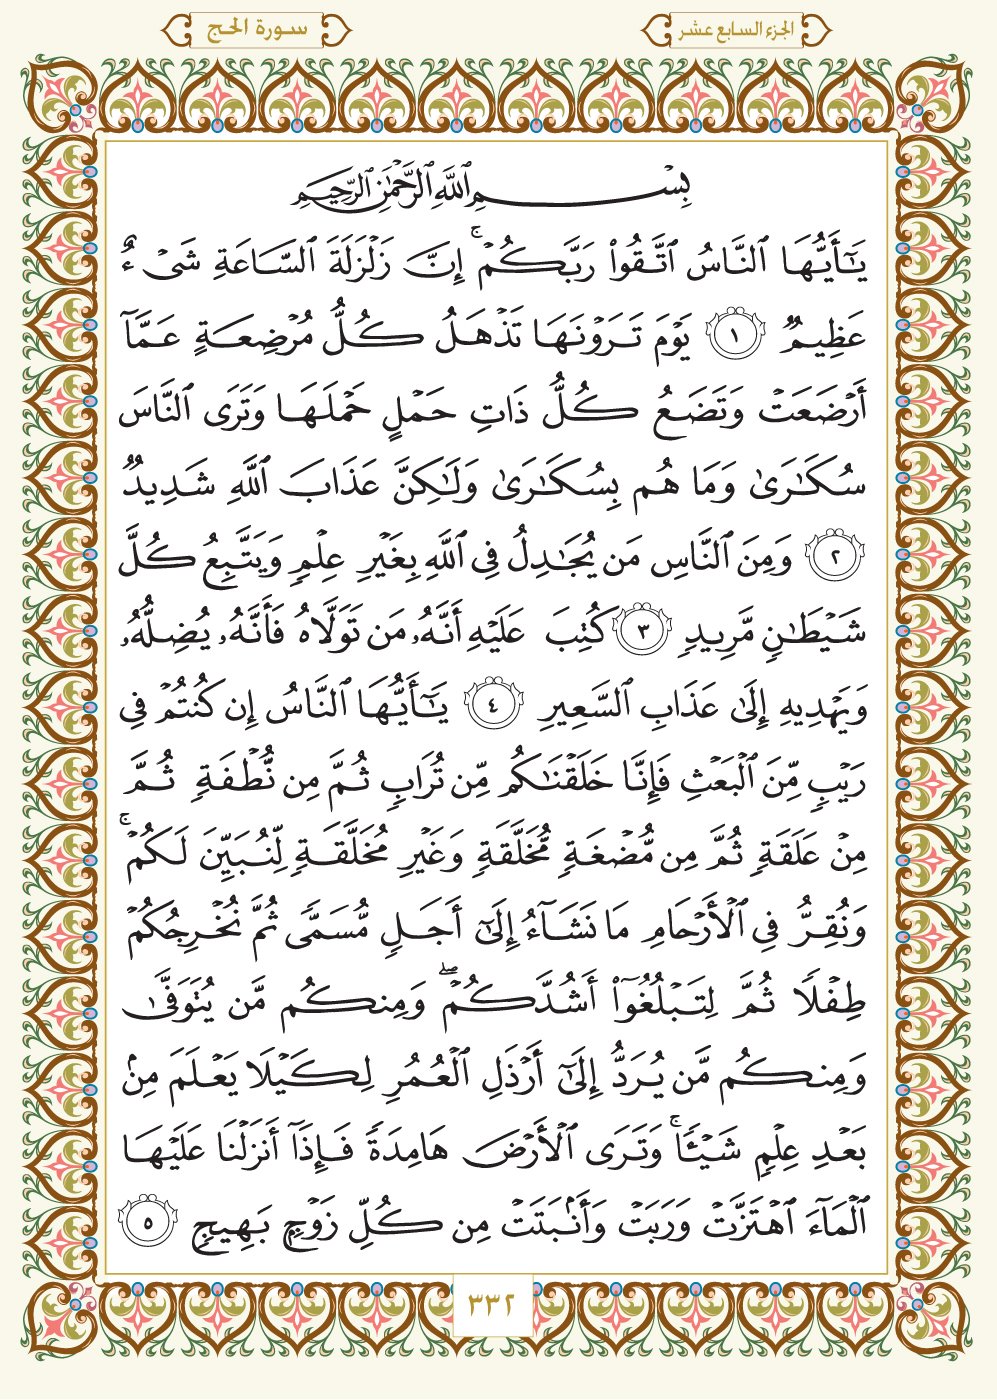 الجزء السابع عشر
سورة الحج
بِسْمِ ٱللَّهِ ٱلرَّحْمَٰنِ ٱلرَّحِيمِ
يَٰٓأَيُّهَا ٱلنَّاسُ ٱتَّقُوا۟ رَبَّكُمْ ۚ إِنَّ زَلْزَلَةَ ٱلسَّاعَةِ شَىْءٌ
عَظِيمٌ ١ يَوْمَ تَرَوْنَهَا تَذْهَلُ كُلُّ مُرْضِعَةٍ عَمَّآ
أَرْضَعَتْ وَتَضَعُ كُلُّ ذَاتِ حَمْلٍ حَمْلَهَا وَتَرَى ٱلنَّاسَ
سُكَٰرَىٰ وَمَا هُم بِسُكَٰرَىٰ وَلَٰكِنَّ عَذَابَ ٱللَّهِ شَدِيدٌ
٢ وَمِنَ ٱلنَّاسِ مَن يُجَٰدِلُ فِى ٱللَّهِ بِغَيْرِ عِلْمٍ وَيَتَّبِعُ كُلَّ
شَيْطَٰنٍ مَّرِيدٍ ٣ كُتِبَ عَلَيْهِ أَنَّهُۥ مَن تَوَلَّاهُ فَأَنَّهُۥ يُضِلُّهُۥ
وَيَهْدِيهِ إِلَىٰ عَذَابِ ٱلسَّعِيرِ ٤ يَٰٓأَيُّهَا ٱلنَّاسُ إِن كُنتُمْ فِى
رَيْبٍ مِّنَ ٱلْبَعْثِ فَإِنَّا خَلَقْنَٰكُم مِّن تُرَابٍ ثُمَّ مِن نُّطْفَةٍ ثُمَّ
مِنْ عَلَقَةٍ ثُمَّ مِن مُّضْغَةٍ مُّخَلَّقَةٍ وَغَيْرِ مُخَلَّقَةٍ لِّنُبَيِّنَ لَكُمْ ۚ
وَنُقِرُّ فِى ٱلْأَرْحَامِ مَا نَشَآءُ إِلَىٰٓ أَجَلٍ مُّسَمًّى ثُمَّ نُخْرِجُكُمْ
طِفْلًا ثُمَّ لِتَبْلُغُوٓا۟ أَشُدَّكُمْ ۖ وَمِنكُم مَّن يُتَوَفَّىٰ
وَمِنكُم مَّن يُرَدُّ إِلَىٰٓ أَرْذَلِ ٱلْعُمُرِ لِكَيْلَا يَعْلَمَ مِنۢ
بَعْدِ عِلْمٍ شَيْـًٔا ۚ وَتَرَى ٱلْأَرْضَ هَامِدَةً فَإِذَآ أَنزَلْنَا عَلَيْهَا
ٱلْمَآءَ ٱهْتَزَّتْ وَرَبَتْ وَأَنۢبَتَتْ مِن كُلِّ زَوْجٍۭ بَهِيجٍ ٥
٣٣٢